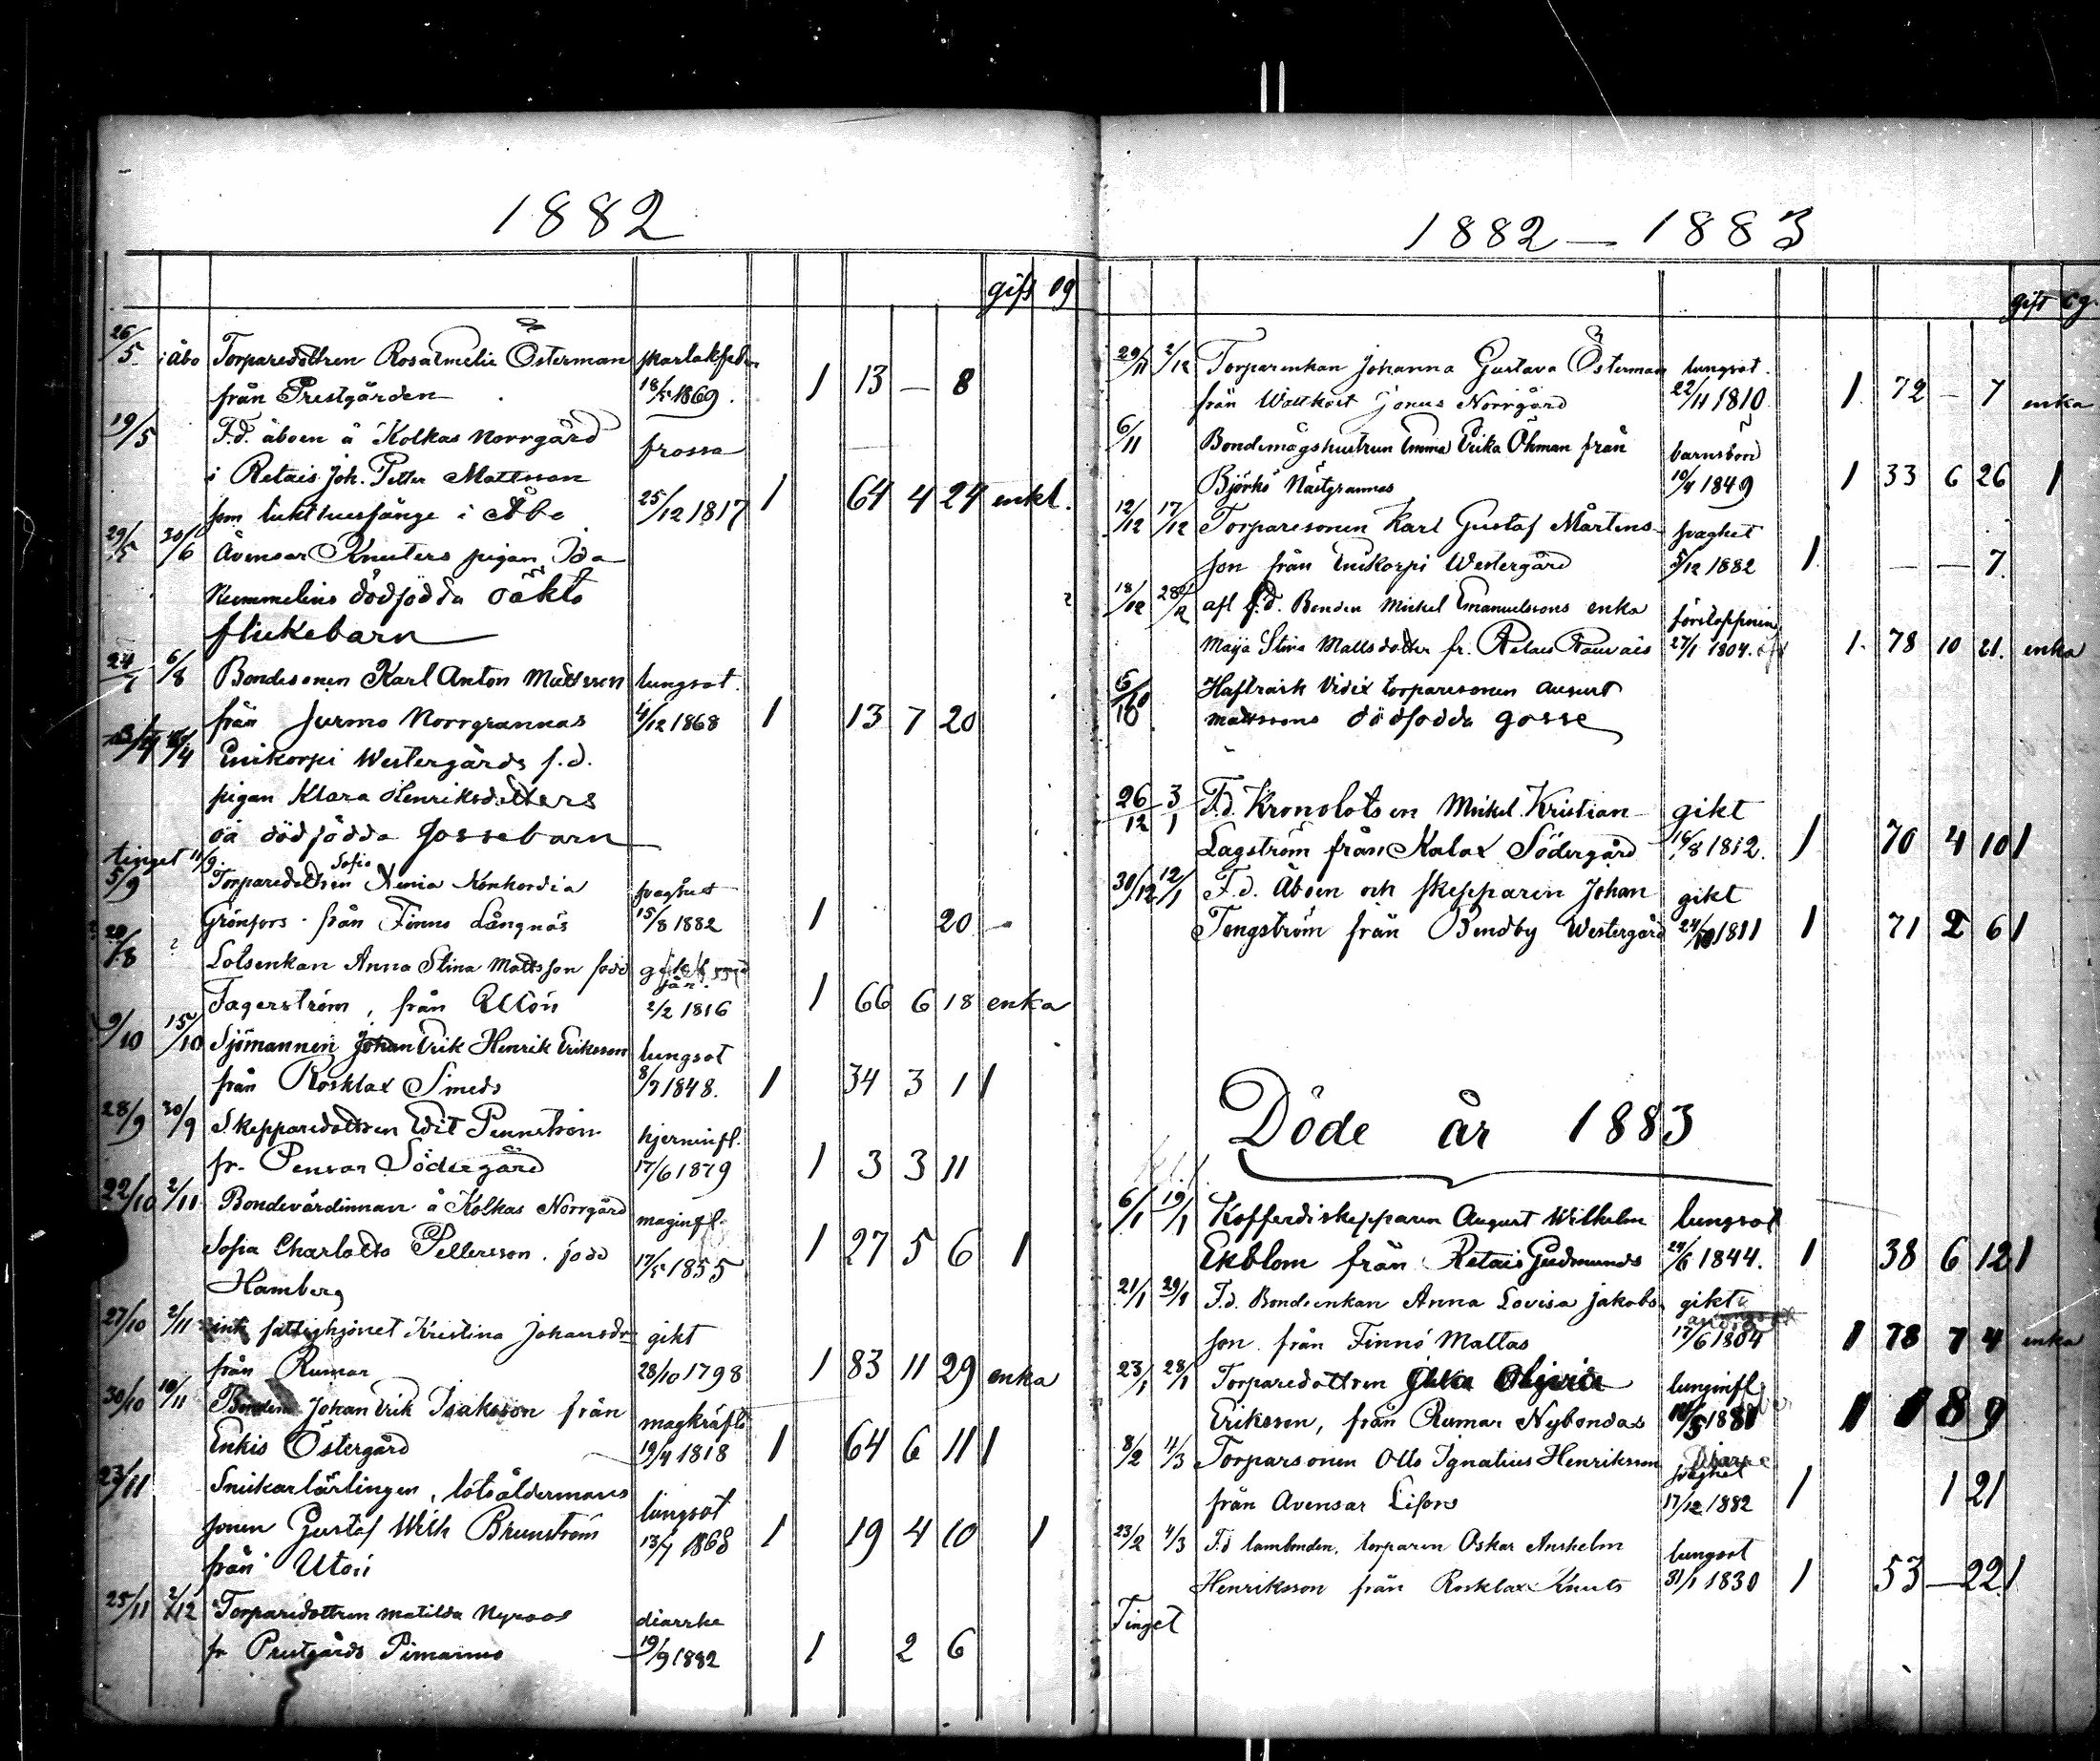 1882
gift og
26/5 i Åbo Torparedottren Rosa Emelie Österman skarlakfeber
från Prestgården 18/5 1869. 1 13 — 8
19/5 F.d. åboen å Kolkas Norrgård frossa
i Retais Joh. Petter Mattsson
som tukthusfånge i Åbo 25/12 1817 1 64 4 24 enkl.
29/5 30/6 Åvensar Knuters pigan Ida
Kummelins dödfödda oäkta
flickebarn
24/7 6/8 Bondesonen Karl Anton Mattsson lungsot.
från Jurmo Norrgrannas 4/12 1868 1 13 7 20
Enikorpi Westergårds f.d.
pigan Klara Henriksdotters
oä dödfödda gossebarn
tinget 11/9.
5/9 Torparedottren Sofia Xenia Konkordia svaghet
Grönfors från Finno Långnäs 15/8 1882 1 20
20/8 ? Lotsenkan Anna Stina Mattsson född
Fagerström, från Utön 2/2 1816 1 66 6 18 enka
9/10 15/10 Sjömannen Johan Erik Henrik Eriksson lungsot
från Rosklax Smeds 8/7 1848. 1 34 3 1 1
28/9 30/9 Skepparedottren Edit Pennström hjerninfl.
fr. Pensar Södergård 17/6 1879 1 3 3 11
22/10 2/11 Bondevärdinnan å Kolkas Norrgård maginfl.
Sofia Charlotta Pettersson. född 17/5 1855 1 27 5 6 1
Hamberg
27/10 2/11 fattighjonet Kristina Johansdr gikt
från Rumar 28/10 1798 1 83 11 29 enka
30/10 19/11 Bonden Johan Erik Isaksson från magkräfta
Enkis Östergård 19/4 1818 1 64 6 11 1
23/11 Snickarlärlingen, lotsåldermans lungsot
sonen Gustaf Wilh Brunström 13/7 1863 1 19 4 10 1
från Utön
25/11 2/12 Torparedottren Matilda Nyroos diarrhe
fr Prestgårds Pimarmo 19/9 1882 1 2 6
1882 — 1883
gift og.
29/11 2/12 Torparenkan Johanna Gustava Österman lungsot.
från Wattkast Jönus Norrgård 22/11 1810. 1. 72 — 7 enka
6/11 Bondemågshustrun Emma Erika Öhman från barnsbörd
Björkö Nästgrannas 10/4 1849 1 33 6 26 1
12/12 17/12 Torparesonen Karl Gustaf Mårtens- svaghet
son från Enikorpi Westergård 5/12 1882 1. — — 7.
18/12 28/12 afl f.d. Bonden Mickel Emanuelssons enka förstoppning
Maja Stina Mattsdotter fr. Retais Rauvais 27/1 1804. 1. 78 10 21. enka
5/10 Haftrask Vidix torparesonen August
Mattssons dödfödda gosse
26/12 3/1 F.d. Kronolotsen Mickel Kristian gikt
Lagström från Kalax Södergård 16/8 1812. 1 70 4 10 1
30/12 12/1 F.d. Åboen och skepparen Johan gikt
Tengström från Bendby Westergård 24/10 1811 1 71 2 6 1
Döde år 1883
6/1 19/1 Kofferdiskepparen August Wilhelm lungsot
Ekblom från Retais Gudmunds 24/6 1844. 1 38 6 12 1
21/1 29/1 F.d. Bondeenkan Anna Lovisa Jakobs- gikt
son från Finnö Mattas 17/6 1804 1 78 7 4 enka
23/1 28/1 Torparedottren Olivia lunginfl
Eriksson, från Rumar Nybondas 14/5 1881 1 1 8 9
8/2 4/3 Torparsonen Otto Ignatius Henriksson svaghet
från Avensar Lisons 17/12 1882 1 1 21
23/2 4/3 F.d lambonden, torparen Oskar Anshelm lungsot
Henriksson från Rosklax Knuts 31/1 1830 1 53 — 22 1
Tinget